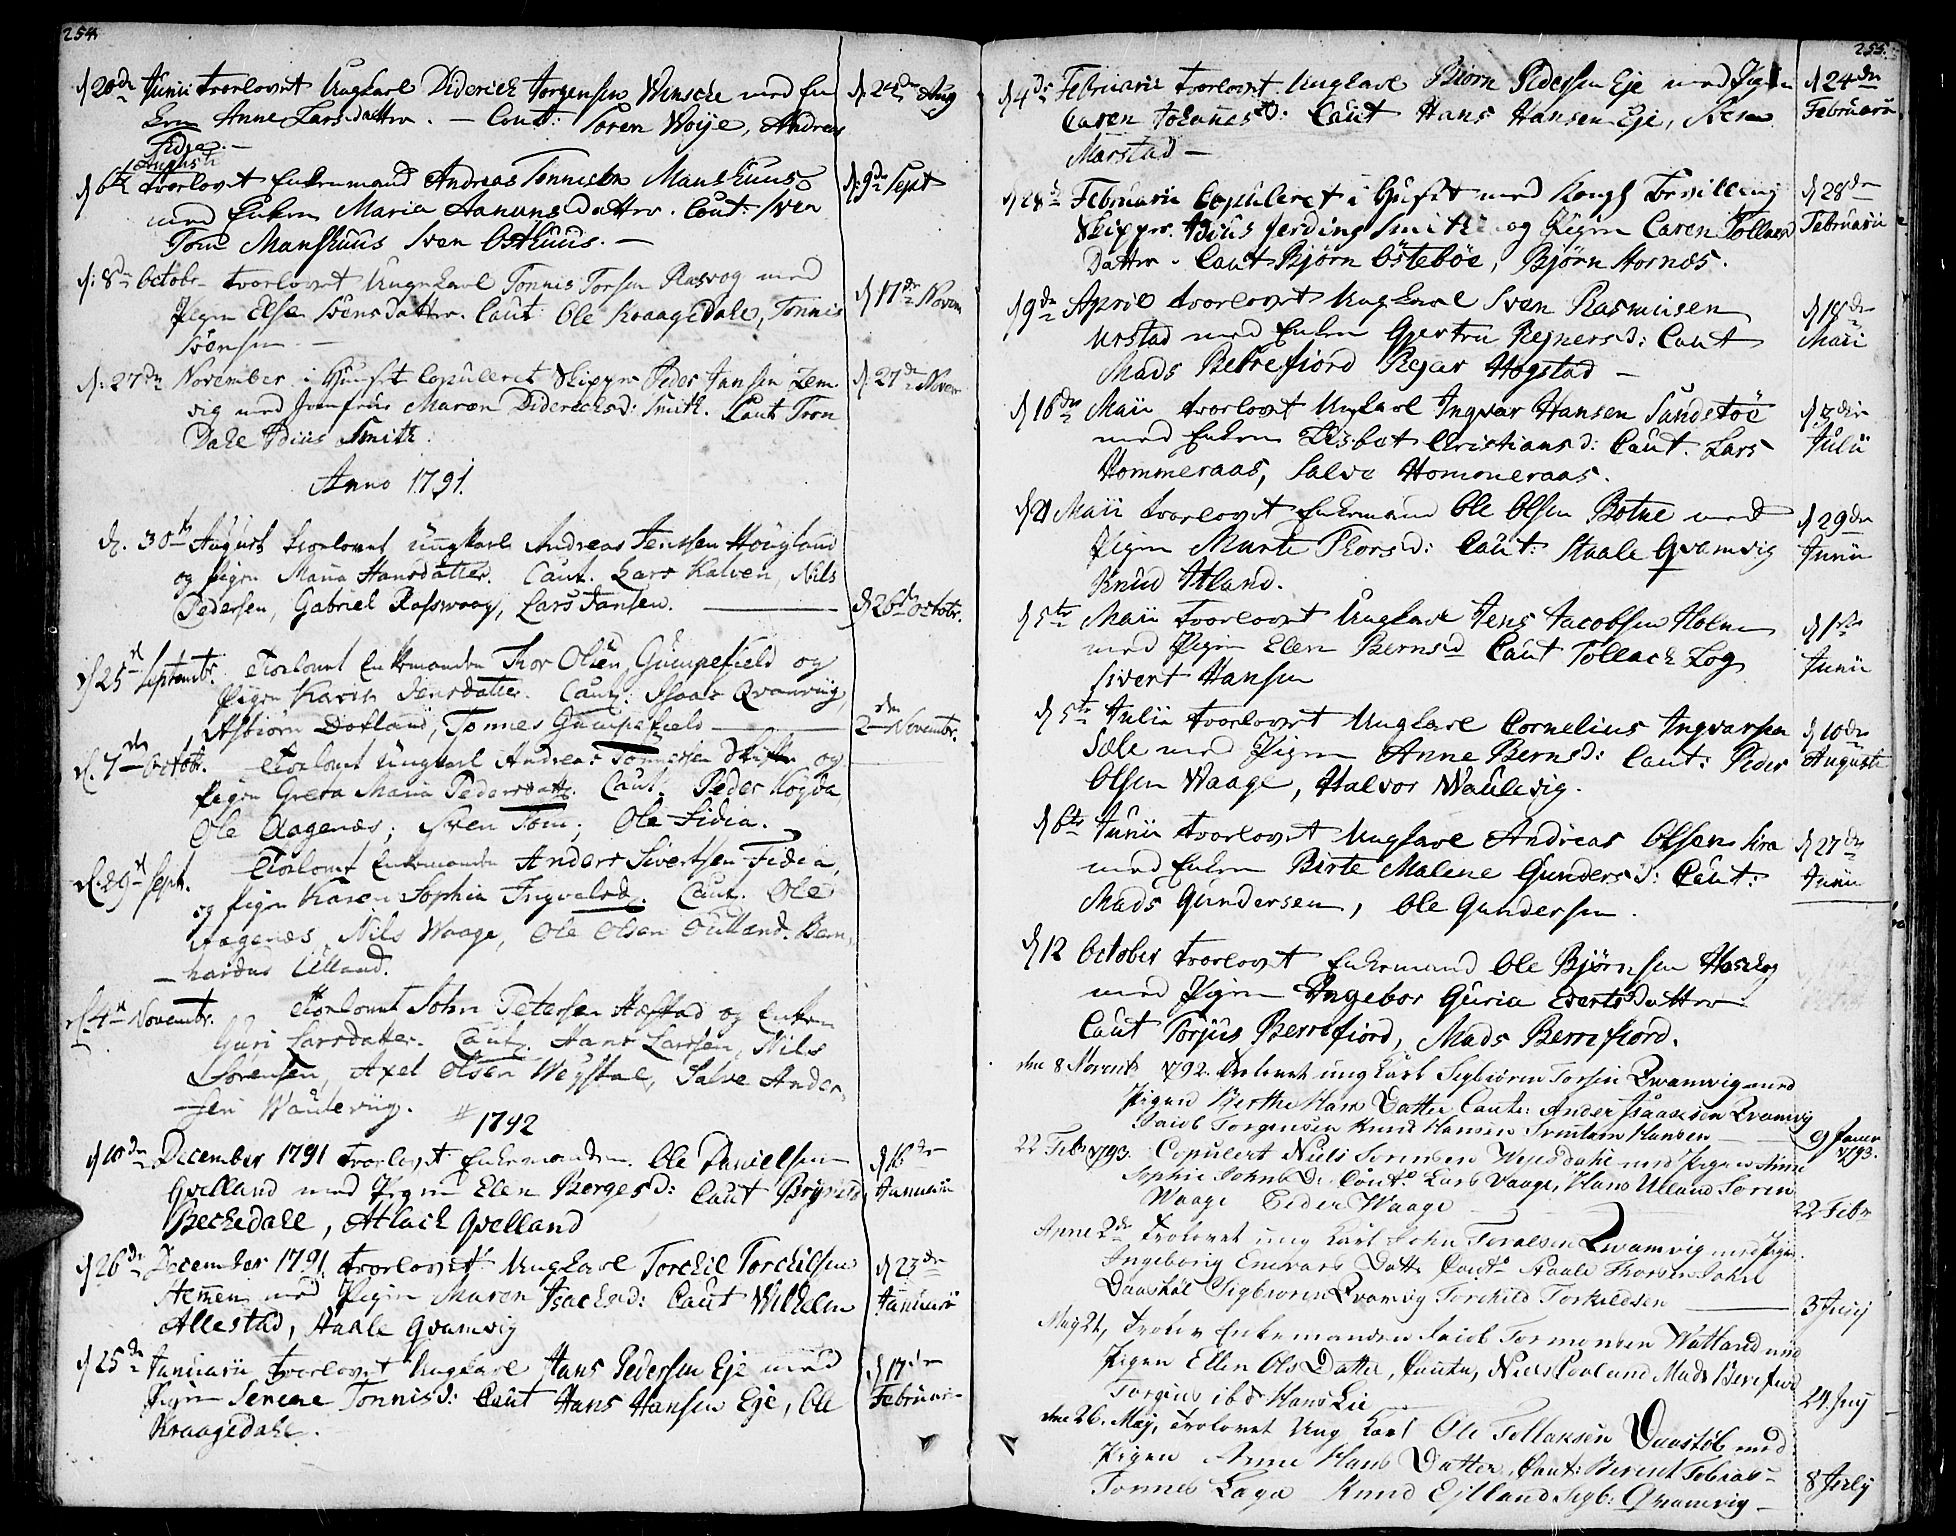 254.
d 20de Junii trolovet Ungkarl Diderich Jörgensen Winsche med En
ken Anne Larsdatter. — Caut: Sören Woije, Andreas
Fidje. —
d 24de Aug
Augusti
d 6te trolovet Enkemand Andreas Tönnisen Manshuus
med Enken Maria Aanunsdatter. Caut: Sven
Tom Manshuus Sven Osthuus. —
d. 9de Sept
d: 8de Octobr trolovet Ungkarl Tönnis Torsen Rasvog med
Pigen Else Svensdatter. Caut: Ole Kraagedale, Tönnis
Svensen. —
d 17de Novem
d: 27de November i Huuset Copuleret Skipper Peder Jansen Lem
vig med Jomfrue Maren Diderichsd: Smith. Caut Tron
Dahl Idius Smith.
d. 27de Novem
Anno 1791.
d. 30te August trolovet ungkarl Andreas Jenssen Hougland
og pigen Maria Hansdatter. Caut. Lars Kalven, Nils
Pedersen, Gabriel Rasswaag, Lars Jansen. —
d 26de Octobr.
d 25de Septembr. trolovet Enkemanden Thor Olsen Gumpefield og
Pigen Karen Jensdatter. Caut. Isaac Qvamviig,
Asbiörn Dotland, Tönnes Gumpefield —
2den Novembr.
d. 7den Octobr. trolovet Ungkarl Andreas Tönnessen og
pigen Greta Maria Pedersdatt. Caut. Peder Kogva
Ole Aagenæs, Sven Tom, Ole Fidia.
d. 29de Sept. trolovet Enkemanden Anders Sivertsen Fidia,
og pigen Karen Sophia Ingvalsd. Caut. Ole
Aagenæs, Nils Waage, Ole Olsen Oulland. Bern-
hardus Ulland.
d 4de Novembr. trolovet John Petersen Hæstad og Enken
Guri Larsdatter. Caut. Hans Larsen, Nils
Sörensen, Axel Olsen Weystøl, Salve Ander-
sen Wauleviig.
# 1792
d 10de December 1791 trolovet Enkemanden Ole Danielsen
Qvelland med Pigen Elen Bergesd: Caut Brynild
Bechedahl, Atlach Qvelland
d 16de
Januarii
d 26de December 1791 trolovet Ungkarl Torchil Torchilsen
Hemen med Pigen Maren Isachsd: Caut Wilhelm
Allestad, Staale Qvamvig
d 23de
Januarii
d 25de Januarii trolovet Ungkarl Hans Pedersen Eje med
Pigen Serene Tönnisd: Caut Hans Hansen Eje, Ole
Kraagedahl.
d 17de
Februari
255.
d 4de Februarii trolovet Ungkarl Biörn Pedersen Eje med Pigen
Caren Johanesd: Caut Hans Hansen Eje, Sven
Marstad —
d 24de
Februarii
d 28de Februarii Copuleret i Huset med Kongl Bevilling
Skipper Idius Jerding Smith og Pigen Caren Tollaes
Datter. Caut Björn Östeböe, Björn Hornæs.
d 28de
Februarii
d 9de April trolovet Ungkarl Sven Rasmusen
Urstad med Enken Gjertru Rejnersd: Caut
Mads Berrefjord Rejar Högstad —
d 18de
Maii
d 16de Maii trolovet Ungkarl Ingvar Hansen Sandstöe
med Enken Lisbet Christiansd: Caut. Lars
Hommeraas, Salve Hommeraas.
d 7de
Julii
d 21 Maii trolovet Enkemand Ole Olsen Botne med
Pigen Marte Thorsd: Caut: Staale Qvamvig
Knud Itland.
d 29de
Junii
d 5te Maii trolovet Ungkarl Jens Jacobsen Holm
med Pigen Elen Bernsd Caut Tollach Log
Sivert Hansen
d 1ste
Junii
d 5te Julii trolovet Ungkarl Cornelius Ingvarsen
Sæle med Pigen Anne Bernsd: Caut: Peder
Olsen Waage, Halvor Waulevig.
d 10de
Augusti
d 6te Junii trolovet Ungkarl Andreas Olsen Kra
med Enken Birte Malene Gundersd: Caut:
Mads Gundersen, Ole Gundersen.
d 27de
Junii
d 12 October trolovet Enkemand Ole Björnsen Haselog
med Pigen Ingebor Guria Evertsdatter
Caut Torjus Berrefiord, Mads Berrefiord.
den 8 Novembr 1792. Trolovet ung Karl Sigbiören Torsen Qvamvig med
Pigen Berthe Hans Datter Caut: Ander Isaachsen Qvamvig
Jacob Torgersen Knud Hansen Hansen —
9 Januar
1793.
22 Febr 1793. Copulert Niels Sorensen Wejesdahl med Pigen Anne
Sophie Johns D: Caut: Lars Vaage, Hans Ulland Soren
Waage Peder Waage
22 Febr
April 2de Trolovet ung Karl John Toralsen Qvamvig med Pigen
Ingeborig Enevars Datter Caut: Staale Thorsen John
Daastøl Sigbioren Qvamvig Torchild Torkildsen —
3 Julij
May 21, Trolov Enkemanden Jacob Tormonsen Watland med
Pigen Ellen Ols Datter, Caut, Niels Mads Berefiord
Torgius ibd Hans Lie
24. July
den 26. May, trolovet Ung Karl Ole Tellaksen Daastøl med
Pigen Anne Hans Datter, Caut: Berent Tobias
Tønnes Laga Knud Ejlland Sigb: Qvamvig —
8 July